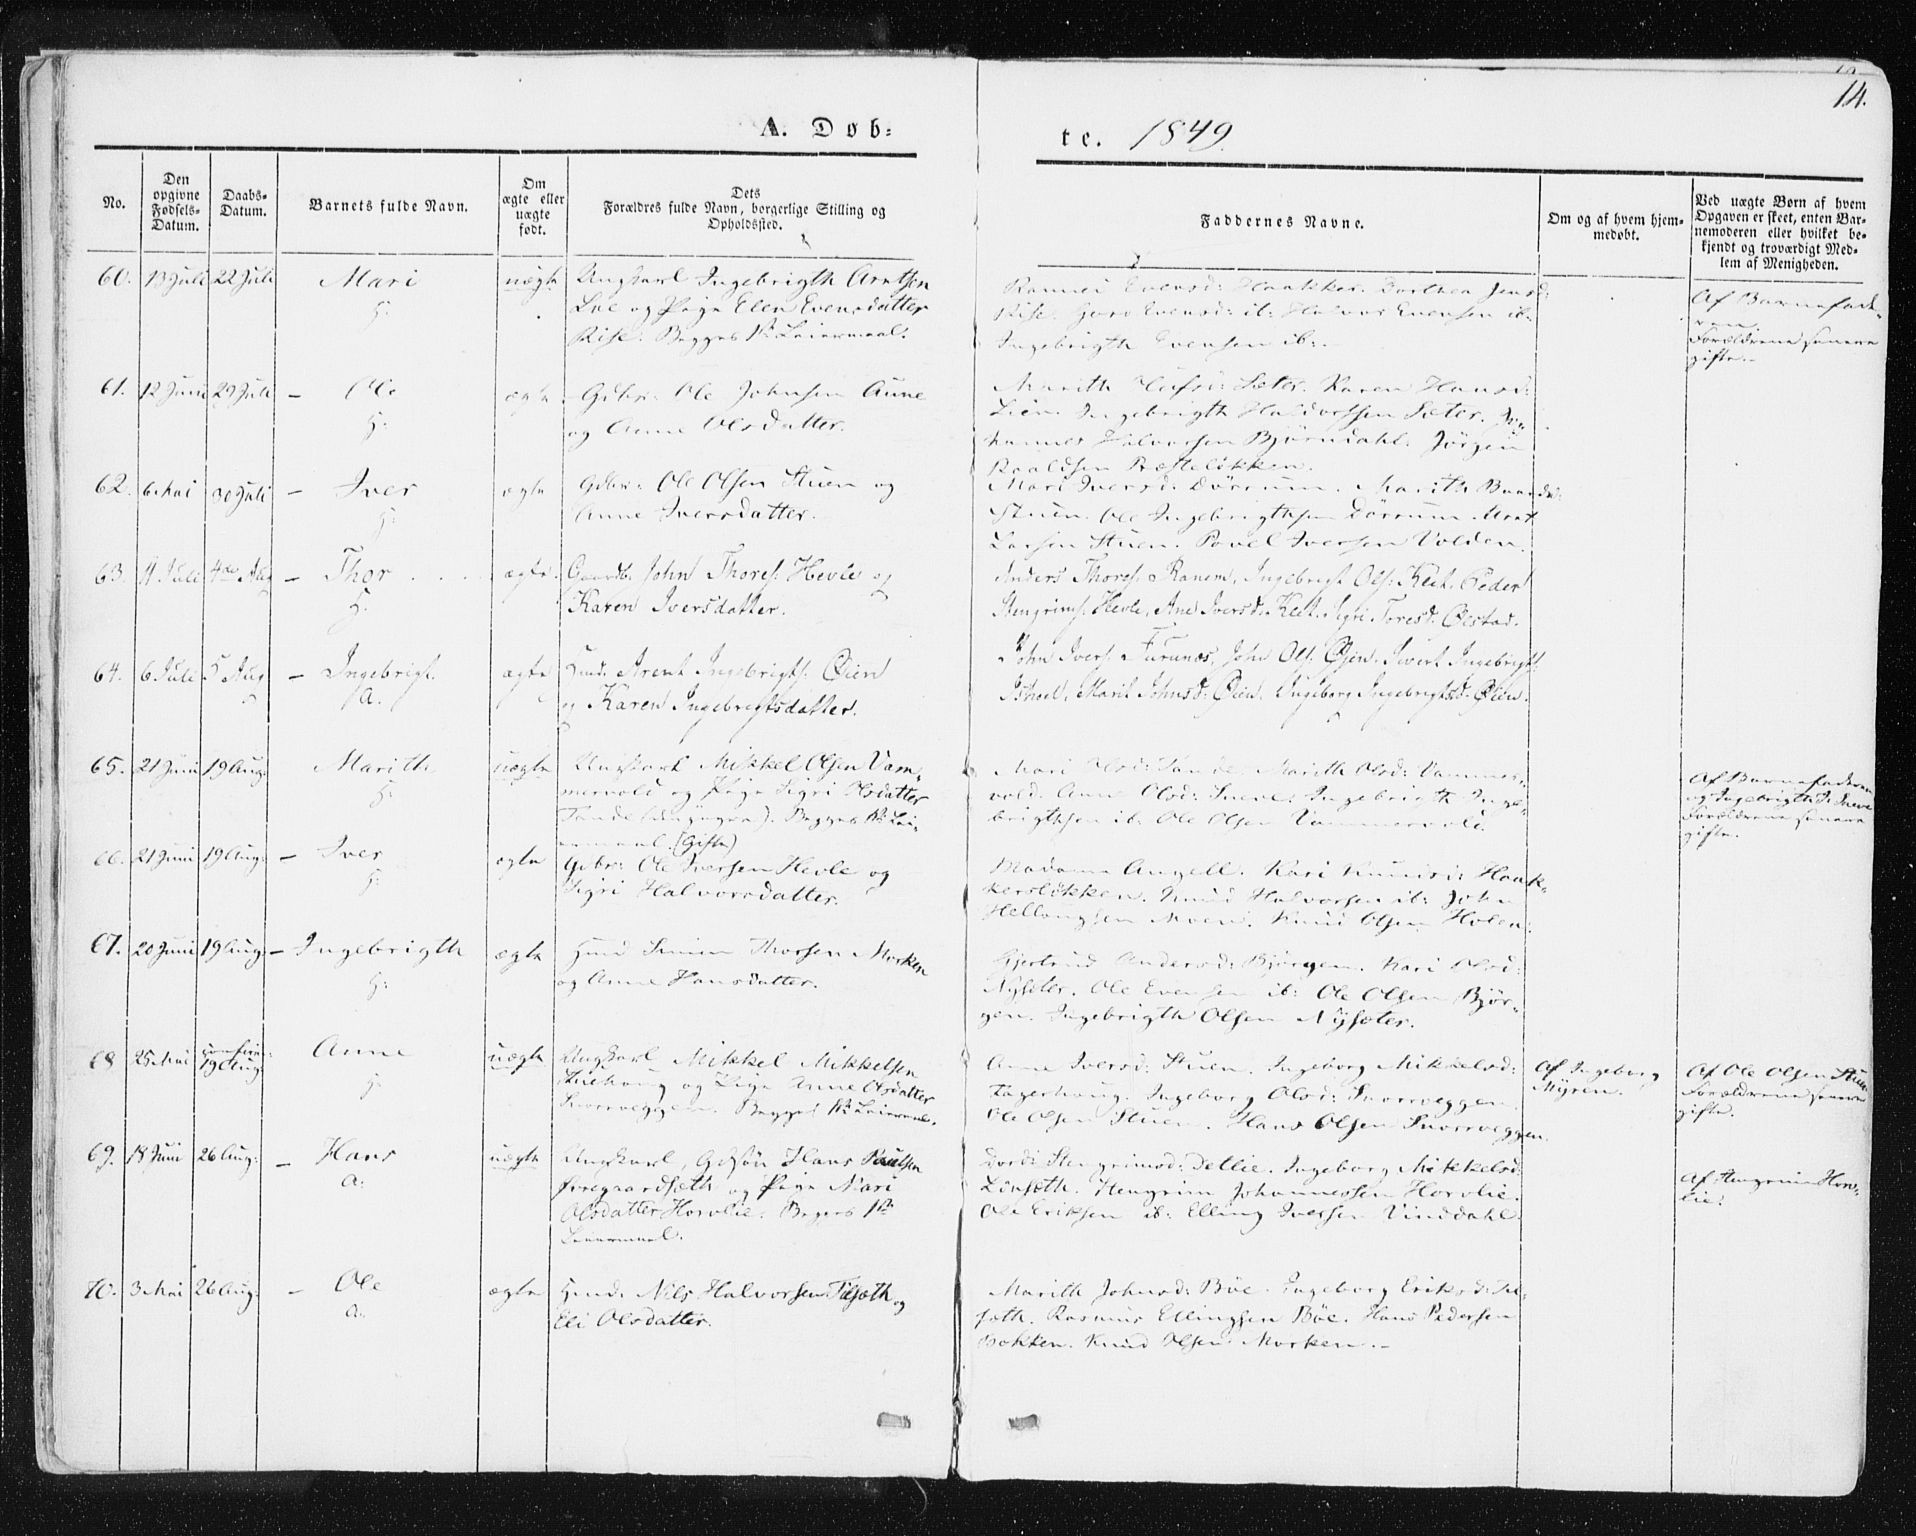 14.
A. Døb=
te. 1849.
No.
Den opgivne Fødsels-Datum.
Daabs-Datum.
Barnets fulde Navn.
Om ægte eller uægte født.
Dets Forældres fulde Navn, borgerlige Stilling og Opholdssted.
Faddernes Navne.
Om og af hvem hjemmedøbt.
Ved uægte Børn af hvem Opgaven er skeet, enten Barnemoderen eller hvilket bekjendt og troværdigt Medlem af Menigheden.
60. 13 Juli 22 Juli Mari uægte Ungkarl Ingebrigth Arntsen
H:
Lee og Pige Elen Evensdatter
Rise. Begges 1ste Leiermaal.
Rannei Evensd: Haakker. Dorthea Jensd:
Rise. Guro Evensd: ib: Halvor Evensen ib:
Ingebrigth Evensen ib:
Af Barnefade-
ren.
Forældrene senere
gifte.
61. 12 Juni 29 Juli – Ole ægte Gdbr: Ole Johnsen Aune
H:
og Anne Olsdatter.
Marith Olufsd: Sæter. Karen Hansd:
Lien. Ingebrigth Haldorssen Sæter. Jo-
hannes Halvorsen Bjørndahl. Jørgen
Roaldsen Præsteløkken.
62. 6 Mai 30 Juli – Iver ægte Gdbr: Ole Olsen Stuen og
H:
Anne Iversdatter.
Mari Iversd: Dørrum. Marith
Stuen. Ole Ingebrigthsen Dørrum. Arnt
Larsen Stuen. Povel Iversen Volden.
63. 11 Juli 4de Aug – Thor ægte Gaardb. John Thores: Hevle og
H.
Karen Iversdatter.
Anders Thores: Ranem, Ingebrigt Ols: Kleet, Peder
Stengrims: Hevle, Ane Iversd: Kleet, Sigri Toresd: Ølstad.
64. 6 Juli 5 Aug – Ingebrigt. ægte Huusd. Arent Ingebrigts: Øien
A.
og Karen Ingebrigtsdatter.
John Ivers: Furunes, John Ols: Øien, Sivert Ingebrigts:
Ishoel, Marit Johnsd: Øien, Ingeborg Ingebrigtsd: Øien.
65. 21 Juni 19 Aug: Marith uægte Ungkarl Mikkel Olsen Vam-
H:
mervold og Pige Sigri Olsdatter
Tande Begges 1ste Lei-
ermaal. (Gifte)
Mari Olsd: Tande. Marith Olsd: Vammer-
vold. Anne Olsd: Sneve. Ingebrigth Inge-
brigthsen ib: Ole Olsen Vammervold.
Af Barnefaderen
og Ingebrigth I. Sneve
Forældrene senere
gifte.
66. 21 Juni 19 Aug: – Iver ægte Gdbr: Ole Iversen Hevle og
H:
Sigri Halvorsdatter.
Madame Angell. Kari Knudsd: Haak-
kersløkken. Knud Halvorsen ib: John
Hellangsen Moen. Knud Olsen Holen.
67. 20 Juni 19 Aug: – Ingebrigth ægte Huusd Simen Thorsen Morken
H:
og Anne Hansdatter.
Gjertrud Andersd: Bjørgen. Kari Olsd:
Nysæter. Ole Evensen ib: Ole Olsen Bjør-
gen. Ingebrigth Olsen Nysæter.
68 25 Mai 19 Aug: Anne uægte Ungkarl Mikkel Mikkelsen
H:
og Pige Anne Olsdatter
Snorrveggen. Begges 1ste Leiermaal.
Anne Iversd: Stuen. Ingeborg Mikkelsd:
Fagerhaug. Ingeborg Olsd: Snorrveggen.
Ole Olsen Stuen. Hans Olsen Snorrveggen.
Af Ingeborg
Myren.
Af Ole Olsen Stuen
Forældrene senere
gifte.
69. 18 Juni 26 Aug: – Hans uægte Ungkarl, Gdsøn Hans Paulsen
A:
og Pige Mari
Olsdatter Horvlie. Begges 1ste
Leiermaal.
Dordi Stengrimsd: Dellie. Ingeborg Mikkelsd:
Linsæth. Stengrim Johannessen Horvlie.
Ole Eriksen ib: Elling Iversen Vinddahl.
Af Stengrim Horv-
lie.
70. 3 Mai 26 Aug: – Ole ægte Huusd: Nils Halvorsen Tilsæth og
A:
Eli Olsdatter.
Marith Johnsd: Böe. Ingeborg Eriksd: Til-
sæth. Rasmus Ellingsen Böe. Hans Pedersen
Bakken. Knud Olsen Morken.